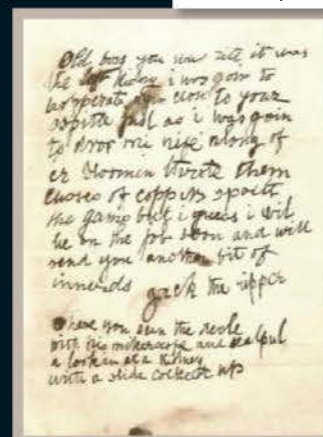 Old boss you was rite it was
the left kidny i was goin to
hopperate agin close to your
ospitle just as i was goin
to drop mi nife along of
er bloomin throte them
cusses of coppers spoilt
the game but i guess i wil
be on the job soon and will
send you another bit of
innerds Jack the ripper
O have you seen the devle
with his mikerscope and scalpul
a lookin at a kidney
with a slide cocked up